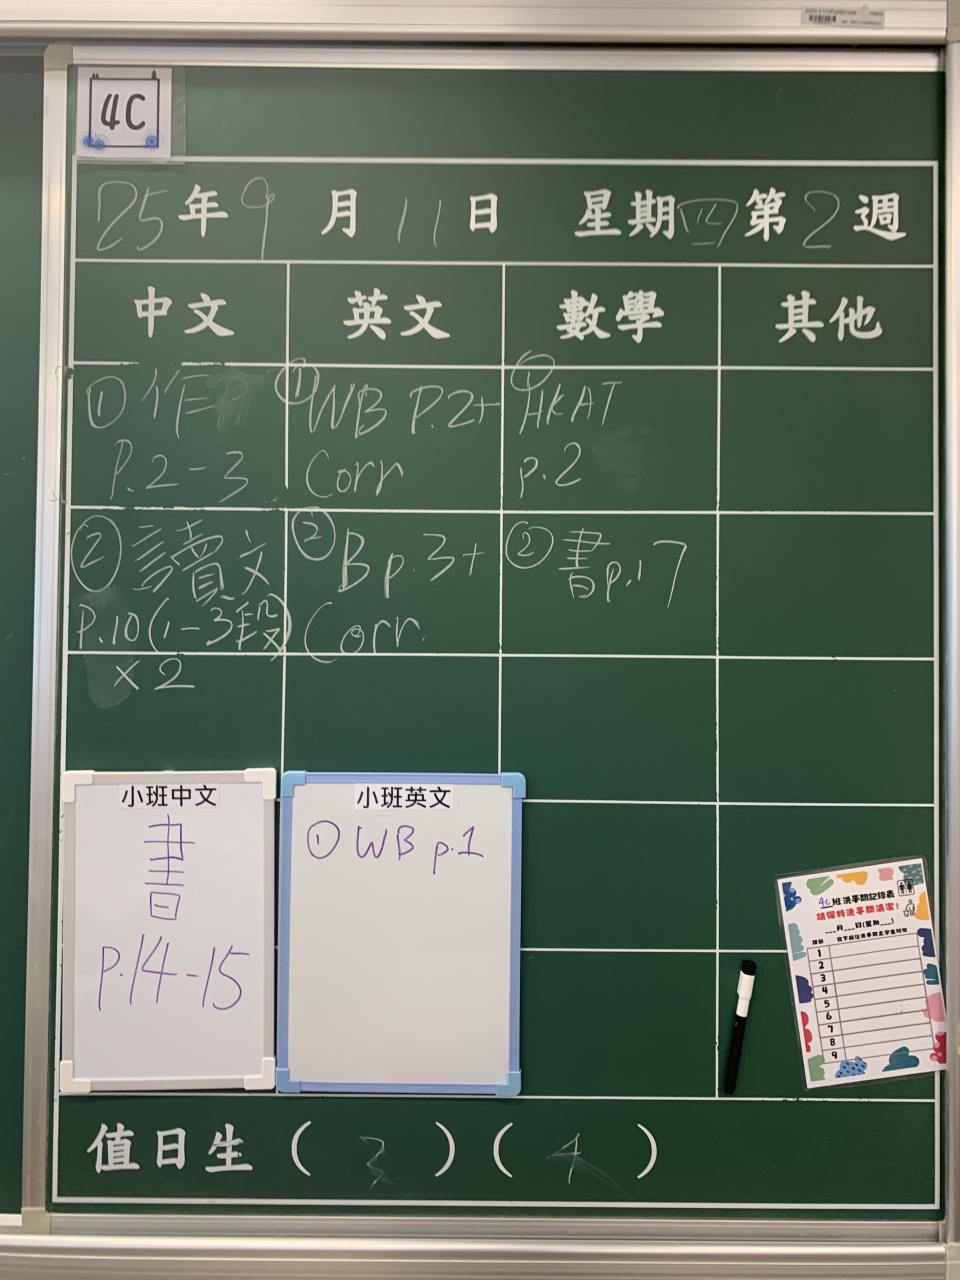 4C
25年9月11日 星期四第2週
中文 英文 數學 其他
① 作
P.2-3
① WB P.2+
Corr
① HKAT
p.2
② 讀文
P.10(1-3段)
×2
② B p.3+
Corr.
② 書p.17
小班中文
書
P.14-15
小班英文
① WB p.1
4C班洗手間記錄表
請保持洗手間清潔!
__月__日(星期__)
1
2
3
4
5
6
7
8
9
值日生(3)(4)